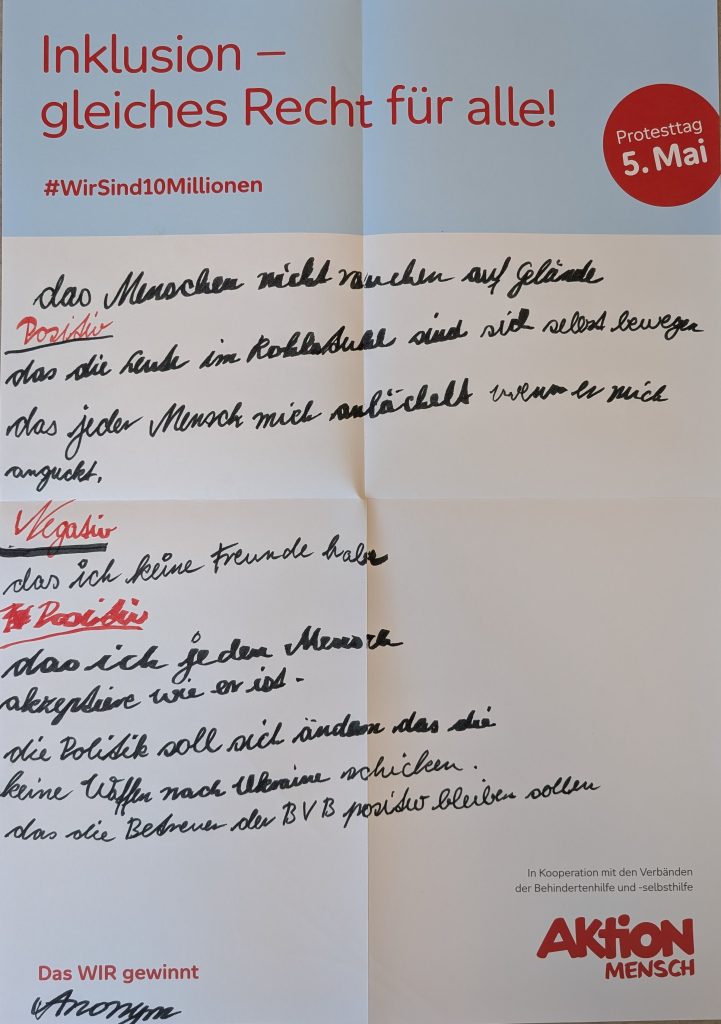 Inklusion –
gleiches Recht für alle!
Protesttag
5. Mai
#WirSind10Millionen
das Menschen nicht rauchen auf Gelände
Positiv
das die Leute im sind sich selbst bewegen
das jeder Mensch mich anlächelt wenn er mich
anguckt.
Negativ
das ich keine Freunde habe
Positiv
das ich jeden Mensch
akzeptiere wie er ist.
die Politik soll sich ändern das die
keine Waffen nach Ukraine schicken.
das die Betreuer der BVB positiv bleiben sollen
In Kooperation mit den Verbänden
der Behindertenhilfe und -selbsthilfe
AKTION
MENSCH
Das WIR gewinnt
Anonym